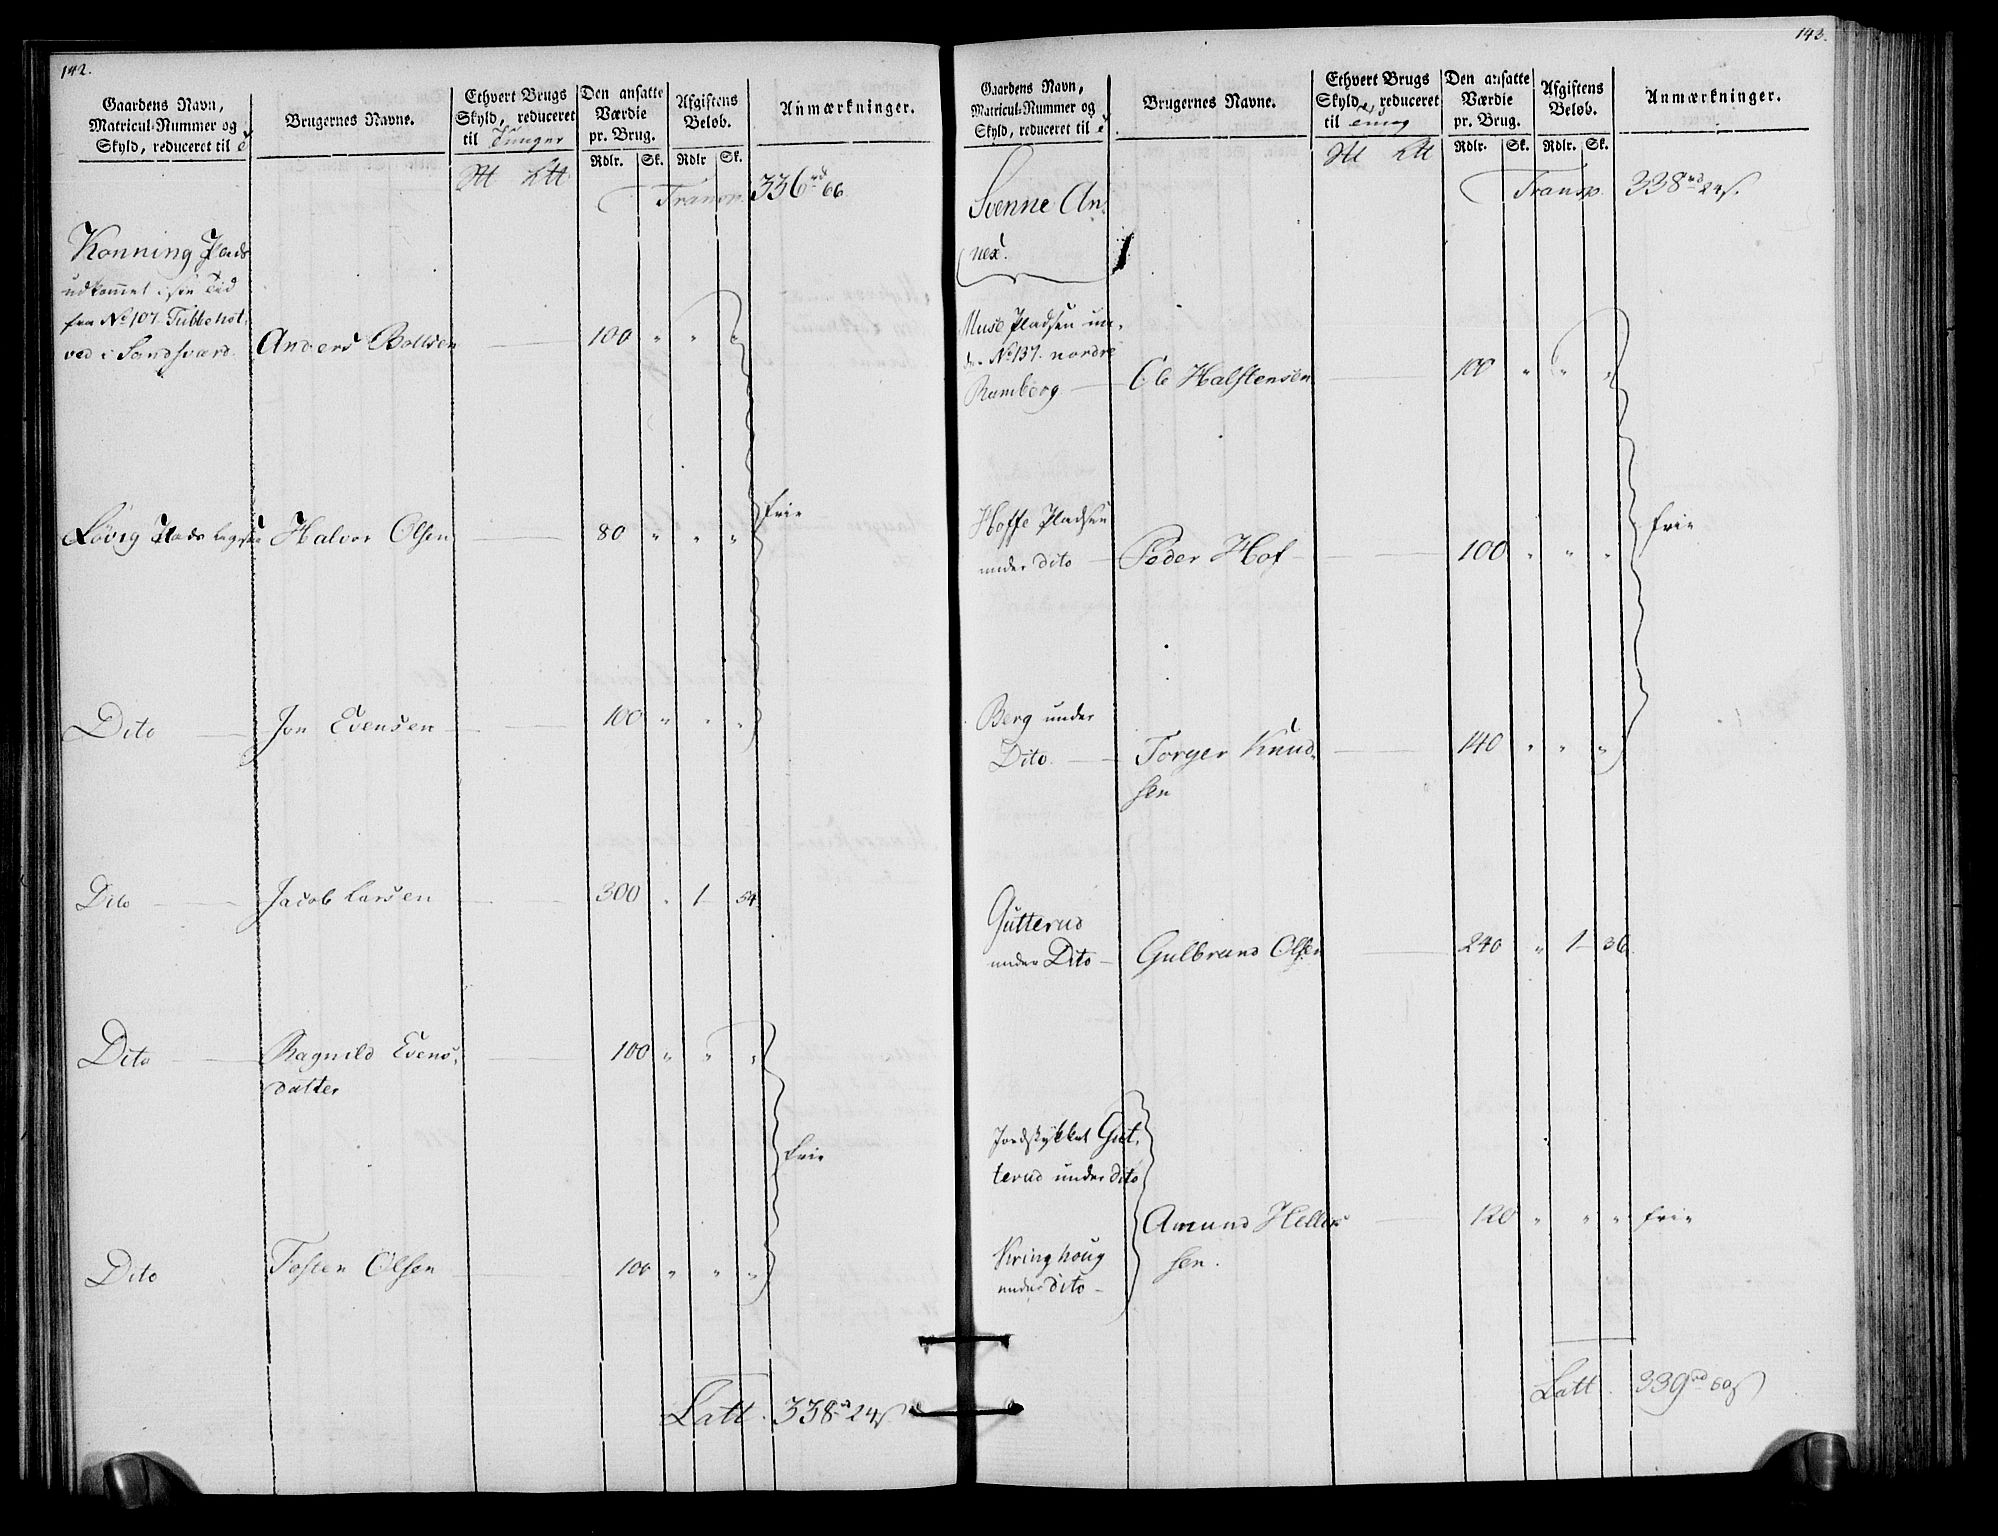 142.
Gaardens Navn,
Matricul-Nummer og
Skyld, reduceret til
Brugernes Navne.
Ethvert Brugs
Skyld, reduceret
til Tunger
Den ansatte
Værdie
pr. Brug.
Afgiftens
Beløb.
Anmærkninger.
Rdlr. Sk. Rdlr Sk.
Transp. 336 rd 66
Konning Plads
udkommet i sin Tid
fra No 107. Tubbehol-
ved i Sandsværd. Anders Boltsen 100 " " "
Løvig Plads Halvor Olsen 80 " " " frie
Dito Jon Evensen 100 " " "
Dito Jacob Larsen 300 " 1 54
Dito Ragnild Evens-
datter 100 " " "
frie
Dito Tosten Olsen 100 " " "
Latt. 338 rd 24 s
143.
Gaardens Navn,
Matricul-Nummer og
Skyld, reduceret til
Brugernes Navne.
Ethvert Brugs
Skyld, reduceret
til
Den ansatte
Værdie
pr. Brug.
Afgiftens
Beløb.
Anmærkninger.
Rdlr. Sk. Rdlr. Sk.
Transp. 338 rd 24 s.
Svenne An-
nex.
Muse Pladsen un-
der No 137. nordre
Ramberg Ole Halstensen 100 " " "
Hoffe Pladsen
under Dito Peder Hof 100 " " " frie
Berg under
Dito Torger Knud-
sen 140 " " "
Gutterud
under Dito Gulbrand Olsen 240 " 1 36
Jordstykket Gut-
terud under Dito
Amund Hellers
sen. 120 " " " frie
Kringhoug
under Dito
Latt. 339 rd 60 s